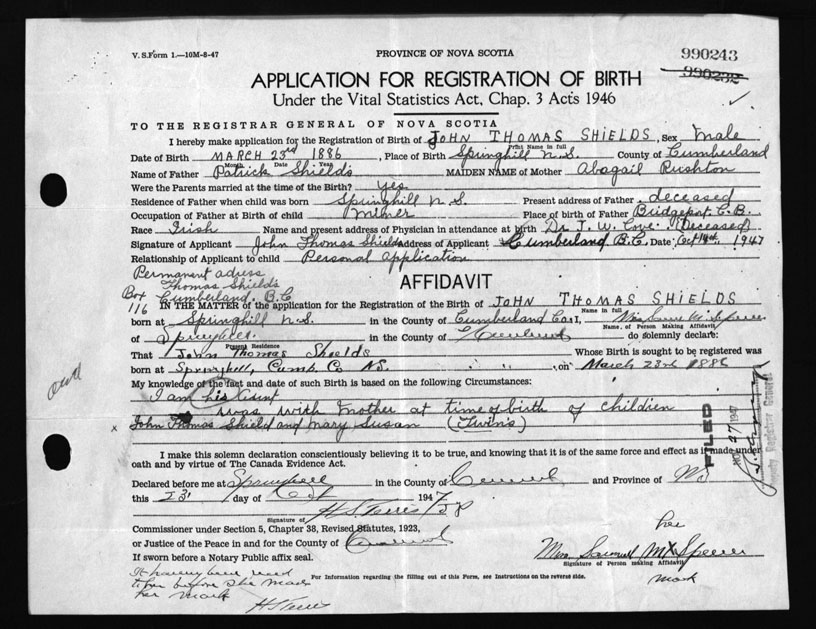 V. S. Form 1.—10M-8-47
PROVINCE OF NOVA SCOTIA
990243
990232
APPLICATION FOR REGISTRATION OF BIRTH
Under the Vital Statistics Act, Chap. 3 Acts 1946
TO THE REGISTRAR GENERAL OF NOVA SCOTIA
I hereby make application for the Registration of Birth of JOHN THOMAS SHIELDS, Sex Male
Print Name in full
Date of Birth MARCH 23rd 1886, Place of Birth Springhill N.S. County of Cumberland
Month Date Year
Name of Father Patrick Shields MAIDEN NAME of Mother Abagail Rushton
Were the Parents married at the time of the Birth? yes
Residence of Father when child was born Springhill N.S. Present address of Father deceased
Occupation of Father at Birth of child Miner Place of birth of Father Bridgeport C.B.
Race Irish Name and present address of Physician in attendance at birth Dr J. W. Cove (Deceased)
Signature of Applicant John Thomas Shields Address of Applicant Cumberland B.C. Date Oct 14th 1947
Relationship of Applicant to child Personal application
Permanent adress
Thomas Shields
Box 116 Cumberland B.C
AFFIDAVIT
IN THE MATTER of the application for the Registration of the Birth of JOHN THOMAS SHIELDS
Name in full
born at Springhill N.S. in the County of Cumberland I, Mrs
Name, of Person Making Affidavit
of Springhill in the County of Cumberland do solemnly declare:
Present Residence
That John Thomas Shields Whose Birth is sought to be registered was
born at Springhill, Cumb. Co NS. on March 23rd 1886
My knowledge of the fact and date of such Birth is based on the following Circumstances:
I am his
was with mother at time of birth of children
x John Thomas Shield and Mary Susan (Twins)
I make this solemn declaration conscientiously believing it to be true, and knowing that it is of the same force and effect as if made under
oath and by virtue of The Canada Evidence Act.
Declared before me at Springhill in the County of and Province of NS
this 23 day of Oct 1947
Signature of
Commissioner under Section 5, Chapter 38, Revised Statutes, 1923,
or Justice of the Peace in and for the County of
If sworn before a Notary Public affix seal.
her
Mrs Samuel M x
Signature of Person making Affidavit
mark
It having been read
to her before she made
her mark
For Information regarding the filling out of this Form, see Instructions on the reverse side.
FILED
27 1947
Deputy Registrar General